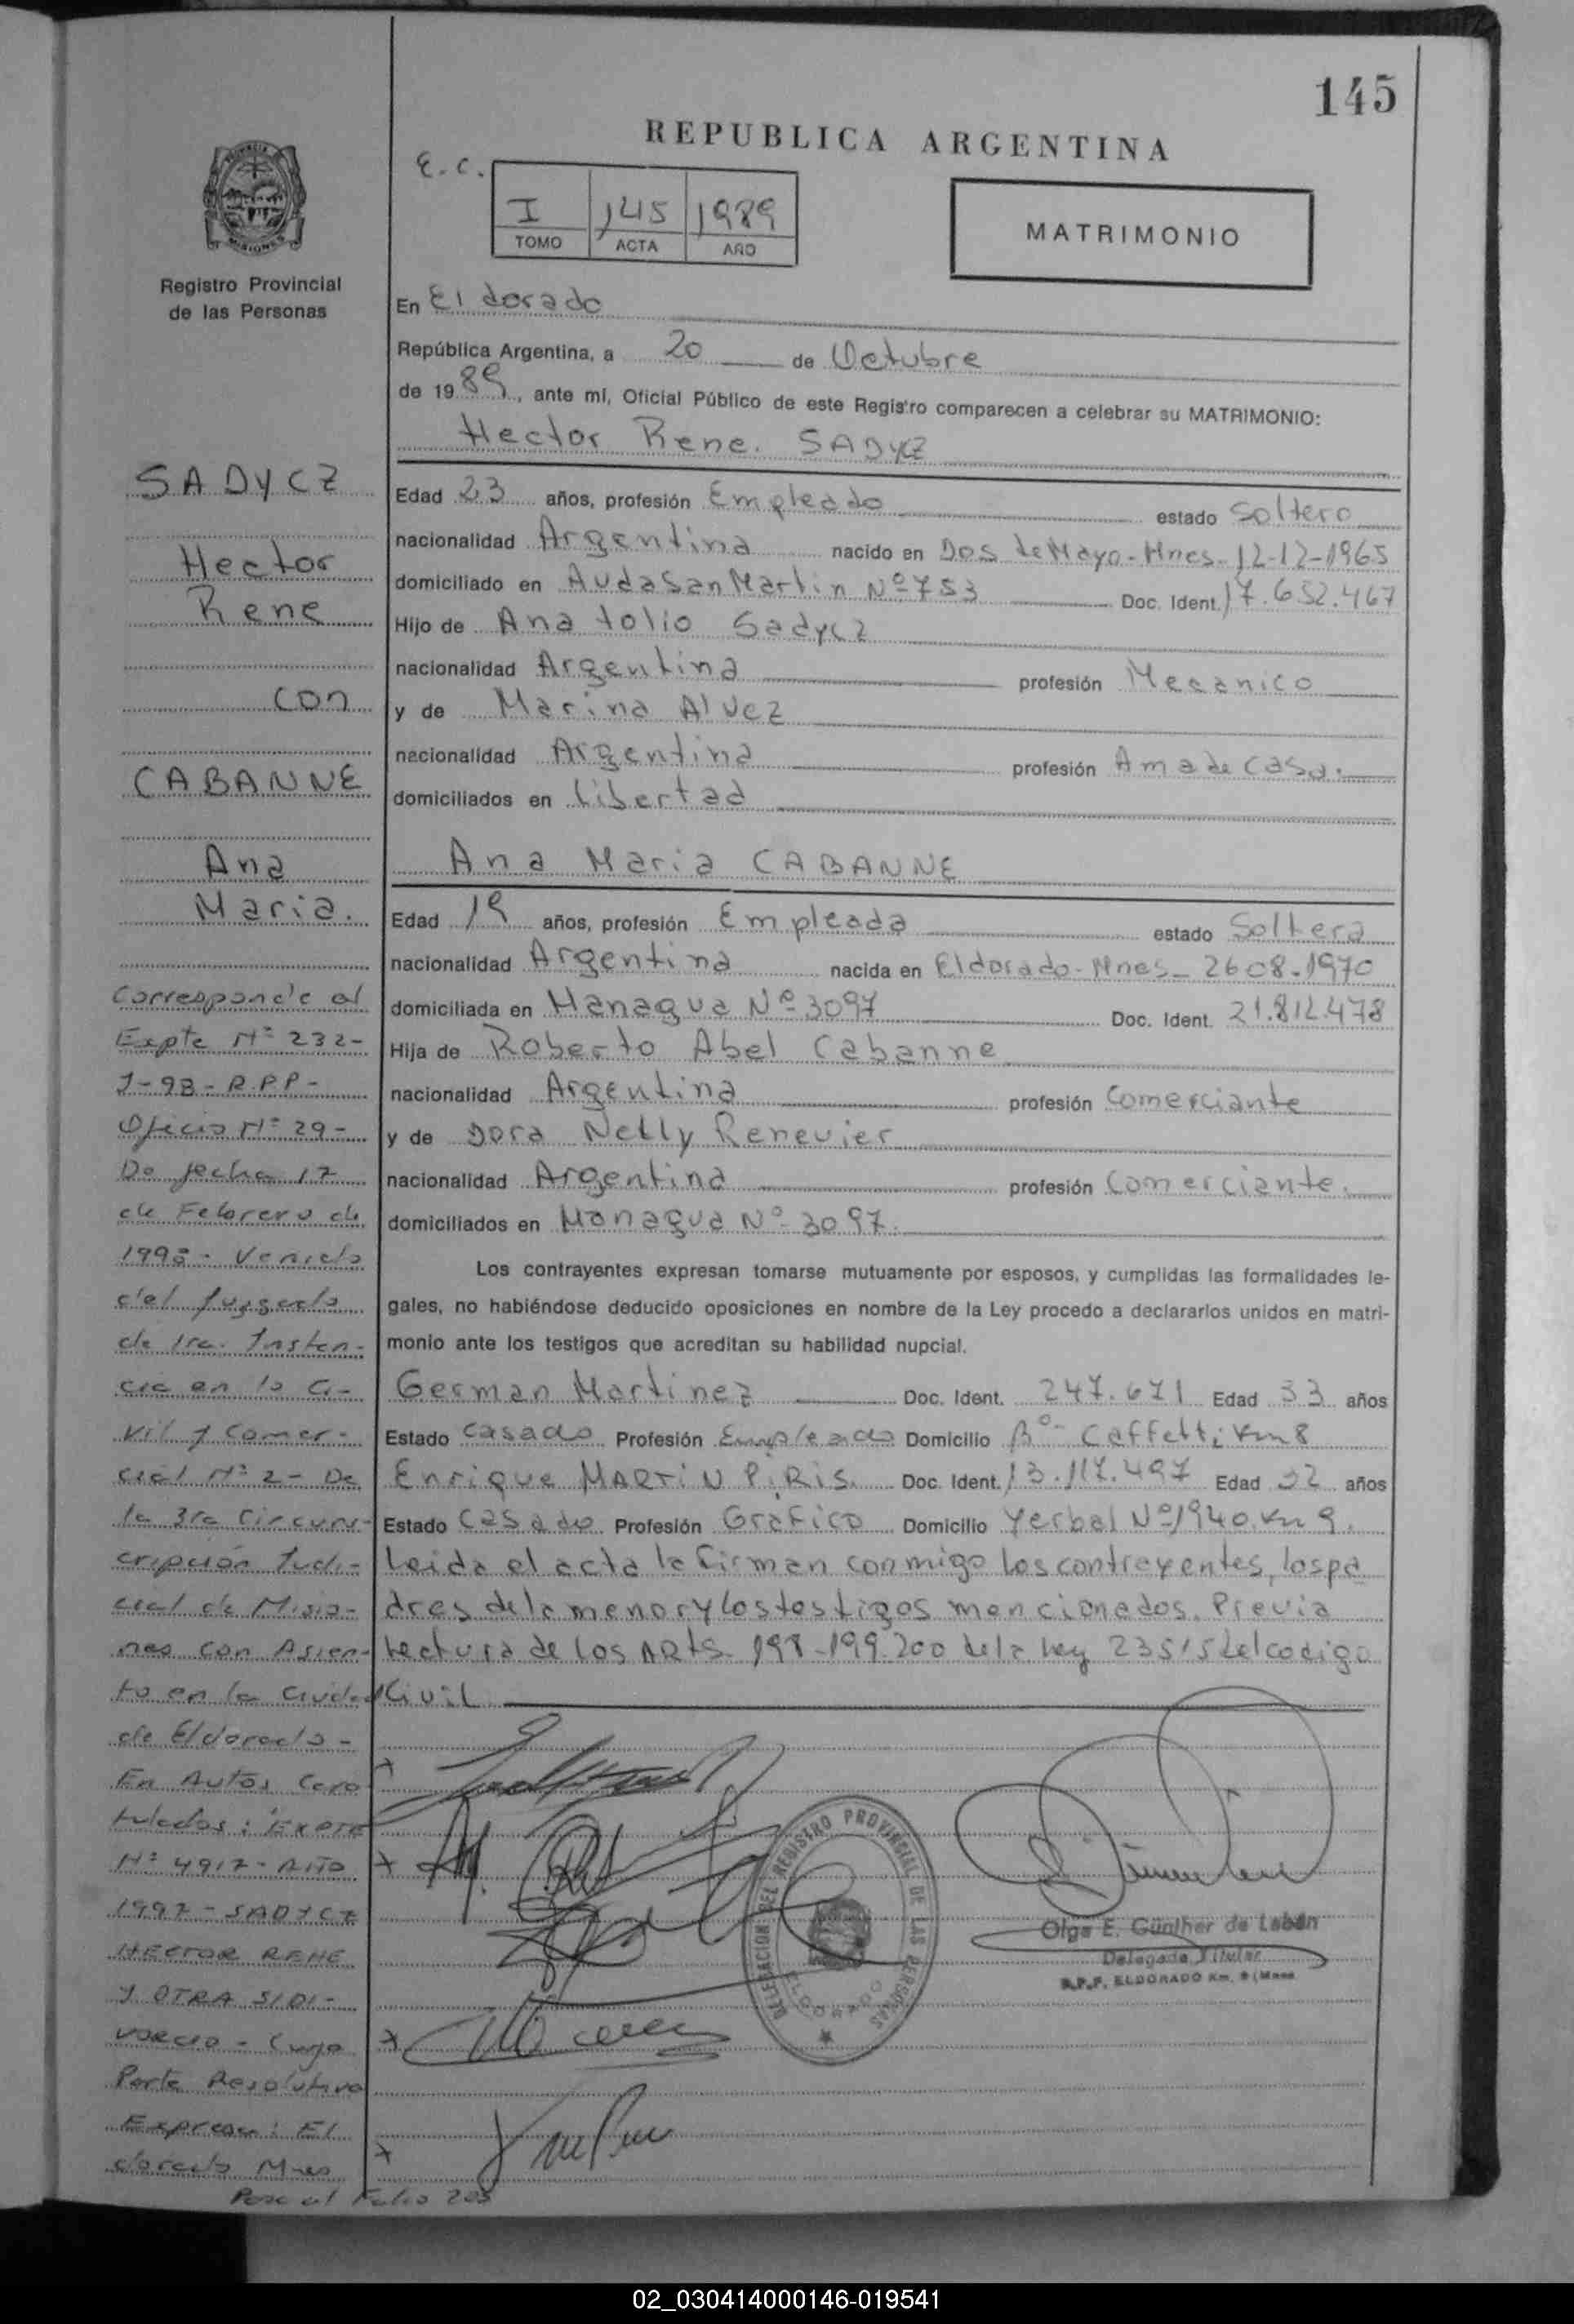 145
REPUBLICA ARGENTINA
E.C.
I 145 1989
TOMO ACTA AÑO
MATRIMONIO
PROVINCIA
MISIONES
Registro Provincial
de las Personas
En Eldorado
República Argentina, a 20 de Octubre
de 1989, ante mí, Oficial Público de este Registro comparecen a celebrar su MATRIMONIO:
Hector Rene. SADYCZ
Edad 23 años, profesión Empleado estado Soltero
nacionalidad Argentina nacido en Dos de Mayo-Mnes-12-12-1965
domiciliado en Avda San Martin Nº 753 Doc. Ident. 17.652.467
Hijo de Anatolio Sadycz
nacionalidad Argentina profesión Mecanico
y de Marina Alvez
nacionalidad Argentina profesión Ama de Casa.
domiciliados en Libertad
Ana Maria CABANNE
Edad 19 años, profesión Empleada estado Soltera
nacionalidad Argentina nacida en Eldorado-Mnes-26-08-1970
domiciliada en Managua Nº 3097 Doc. Ident. 21.812.478
Hija de Roberto Abel Cabanne
nacionalidad Argentina profesión Comerciante
y de Dora Nelly Renevier
nacionalidad Argentina profesión Comerciante.
domiciliados en Managua Nº 3097.
Los contrayentes expresan tomarse mutuamente por esposos, y cumplidas las formalidades le-
gales, no habiéndose deducido oposiciones en nombre de la Ley procedo a declararlos unidos en matri-
monio ante los testigos que acreditan su habilidad nupcial.
German Martinez Doc. Ident. 247.671 Edad 33 años
Estado Casado Profesión Empleado Domicilio Bº Caffetti Km 8
Enrique MARTIN PIRIS. Doc. Ident. 13.117.497 Edad 32 años
Estado Casado Profesión Gráfico Domicilio Yerbal Nº 1940. Km 9.
Leida el acta la firman conmigo los contrayentes, los pa
dres de la menor y los testigos mencionados. Previa
Lectura de los ARts. 198-199.200 de la Ley 23515 del codigo
Civil
SADYCZ
Hector
Rene
con
CABANNE
Ana
Maria.
Corresponde al
Expte Nº 232-
J-98-R.P.P-
Oficio Nº 29-
De fecha 17
de Febrero de
1998- Venido
del Juzgado
de 1ra. Instan-
cia en lo Ci-
vil y Comer-
cial Nº 2- De
la 3ra Circuns-
cripción Judi-
cial de Misio-
nes con Asien-
to en la Ciudad
de Eldorado-
En Autos Cara
tulados: EXPTE
Nº 4917- AÑO
1997- SADYCZ
HECTOR RENE
Y OTRA S/DI-
VORCIO- Cuya
Parte Resolutiva
Expresa: El
dorado Mnes
Pasa al Folio 205
DELEGACION DEL REGISTRO PROVINCIAL DE LAS PERSONAS
ELDORADO
Olga E. Günther de Labán
Delegada Titular
R.P.P. ELDORADO Km. 9 (Mnes
02_030414000146-019541